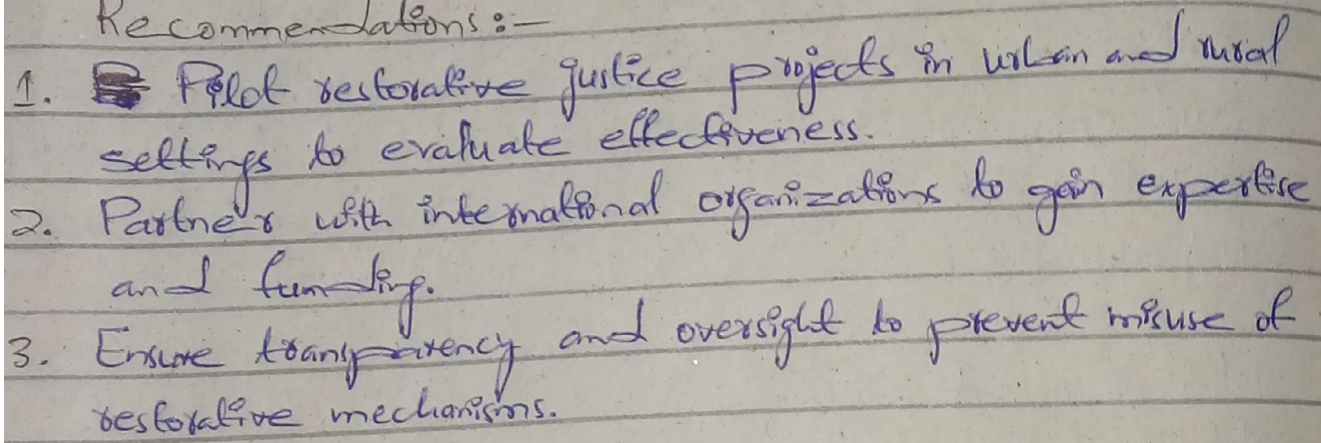 Recommendations :-
1. Pilot restorative justice projects in urban and rural
settings to evaluate effectiveness.
2. Partner with international organizations to gain expertise
and funding.
3. Ensure transparency and oversight to prevent misuse of
restorative mechanisms.